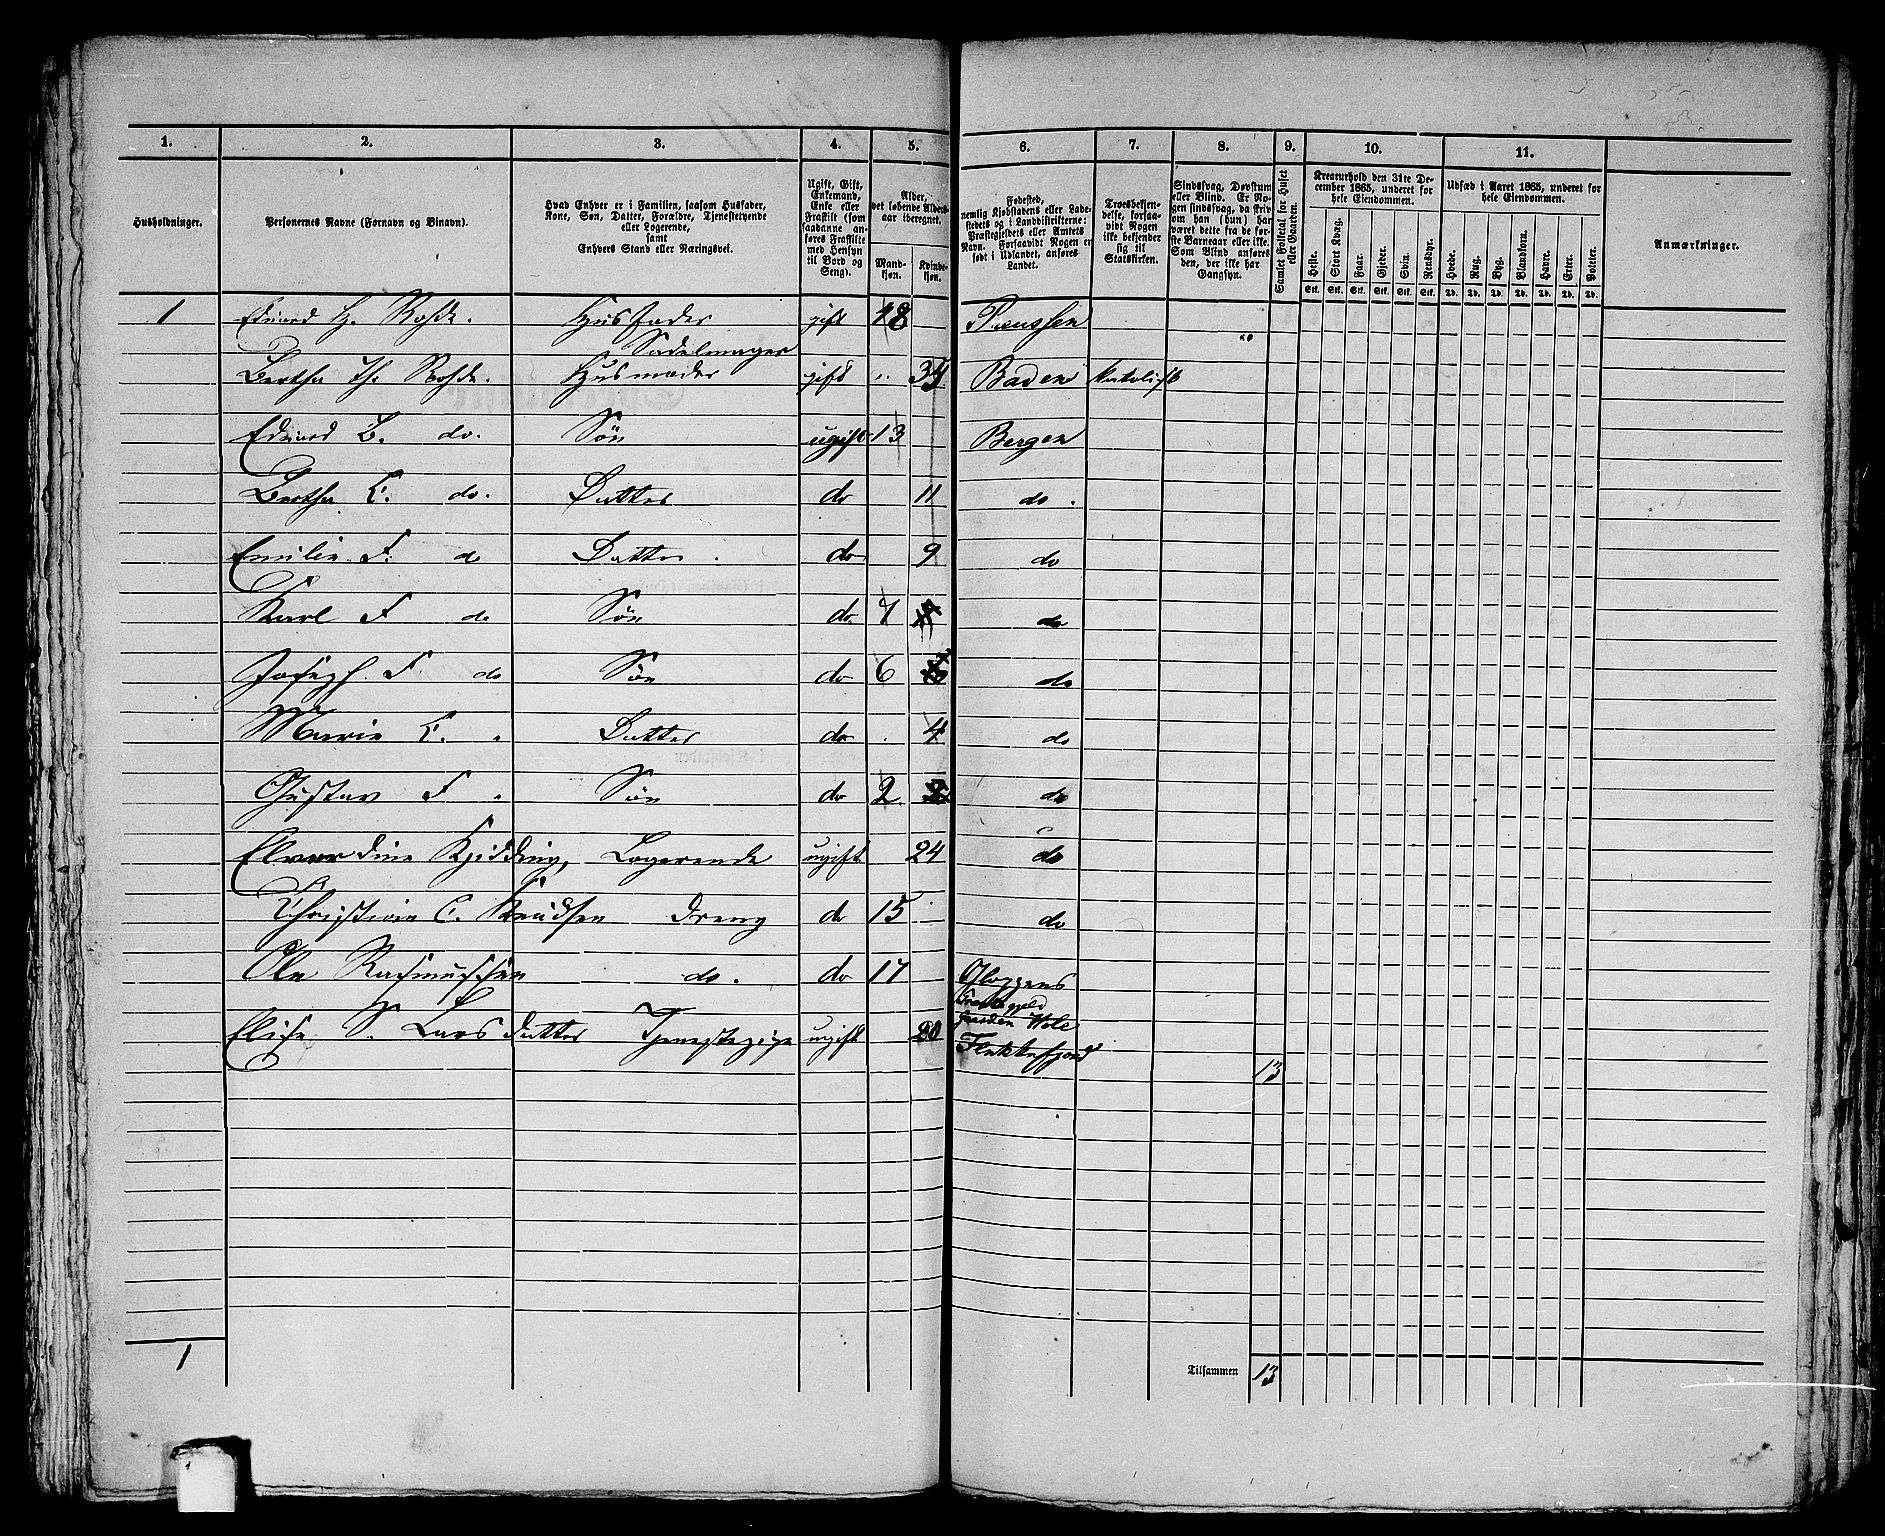 1. 2. 3. 4. 5. 6. 7. 8. 9. 10. 11.
Husholdninger.
Personernes Navne (Fornavn og Binavn).
Hvad Enhver er i Familien, saasom Husfader,
Kone, Søn, Datter, Forældre, Tjenestetyende
eller Logerende,
samt
Enhvers Stand eller Næringsvei.
Ugift, Gift,
Enkemand,
Enke eller
Fraskilt (som
saadanne an-
føres Fraskilte
med Hensyn
til Bord og
Seng).
Alder,
det løbende Alders-
aar iberegnet.
Mand-
kjøn.
Kvinde-
kjøn.
Fødested,
nemlig Kjøbstadens eller Lade-
stedets og i Landdistrikterne:
Præstegjeldets eller Amtets
Navn. Forsaavidt Nogen er
født i Udlandet, anføres
Landet.
Troesbekjen-
delse, forsaa-
vidt Nogen
ikke bekjender
sig til
Statskirken.
Sindssvag, Døvstum
eller Blind. Er No-
gen sindssvag, da skriv
om han (hun) har
været dette fra de før-
ste Barneaar eller ikke.
Som Blind anføres
den, der ikke har
Gangsyn.
Samlet Folketal for Huset
eller Gaarden.
Kreaturhold den 31te De-
cember 1865, underet for
hele Eiendommen.
Heste. Stort Kvæg. Faar. Gjeder. Svin. Rensdyr.
Stk. Stk. Stk. Stk. Stk. Stk.
Udsæd i Aaret 1865, underet for
hele Eiendommen.
Hvede. Rug. Byg. Blandkorn. Havre. Erter. Poteter.
Td. Td. Td. Td. Td. Td. Td.
Anmærkninger.
1 Eduard H. Rohde. Husfader gift 48 Preussen
Sadelmager
Bertha Th. Rohde. Husmoder gift 35 Baden Katolisk
Eduard B. do. Søn ugift 13 Bergen
Bertha C. do. Datter do 11 do.
Emilie F. do Datter. do 9 do
Karl F do Søn do 7 do
Joseph F do Søn do 6 do
Marie C. Datter do 4 do
Gustav F Søn do 2 do
Elverdine Kjidding, Logerende ugift 24 do
Christian C. Knudsen Dreng do 15 do
Ole Rasmussen do. do 17
Præstegjeld
Elise S. Larsdatter Tjenestepige ugift 20 Flekkefjord
13
1 Tilsammen 13